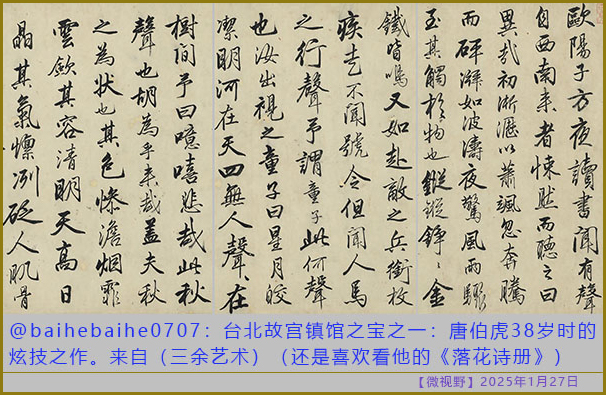 歐陽子方夜讀書聞有聲
自西南来者悚然而聽之曰
異哉初淅瀝以蕭颯忽奔騰
而砰湃如波濤夜驚風雨驟
至其觸於物也鏦鏦錚〻金
鐵皆鳴又如赴敵之兵銜枚
疾走不聞號令但聞人馬
之行聲予謂童子此何聲
也汝出視之童子曰星月皎
潔明河在天四無人聲〻在
樹間予曰噫嘻悲哉此秋
聲也胡為乎来哉蓋夫秋
之為狀也其色慘澹烟霏
雲斂其容清明天高日
晶其氣慄冽砭人肌骨
@baihebaihe0707：台北故宫镇馆之宝之一：唐伯虎38岁时的
炫技之作。来自（三余艺术）（还是喜欢看他的《落花诗册》）
【微视野】2025年1月27日